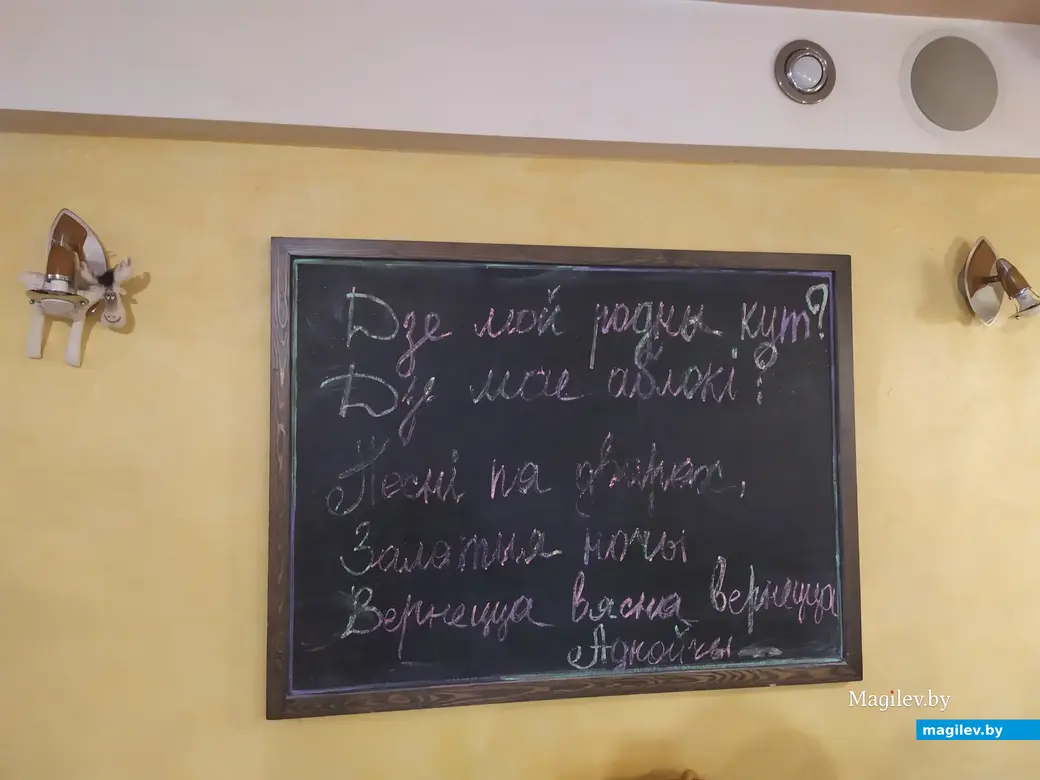 Дзе мой родны кут?
Дзе мае аблокі?
Песні па дварах,
Залатыя ночы
Вернецца вясна вернецца
Аднойчы
Magilev.by
magilev.by